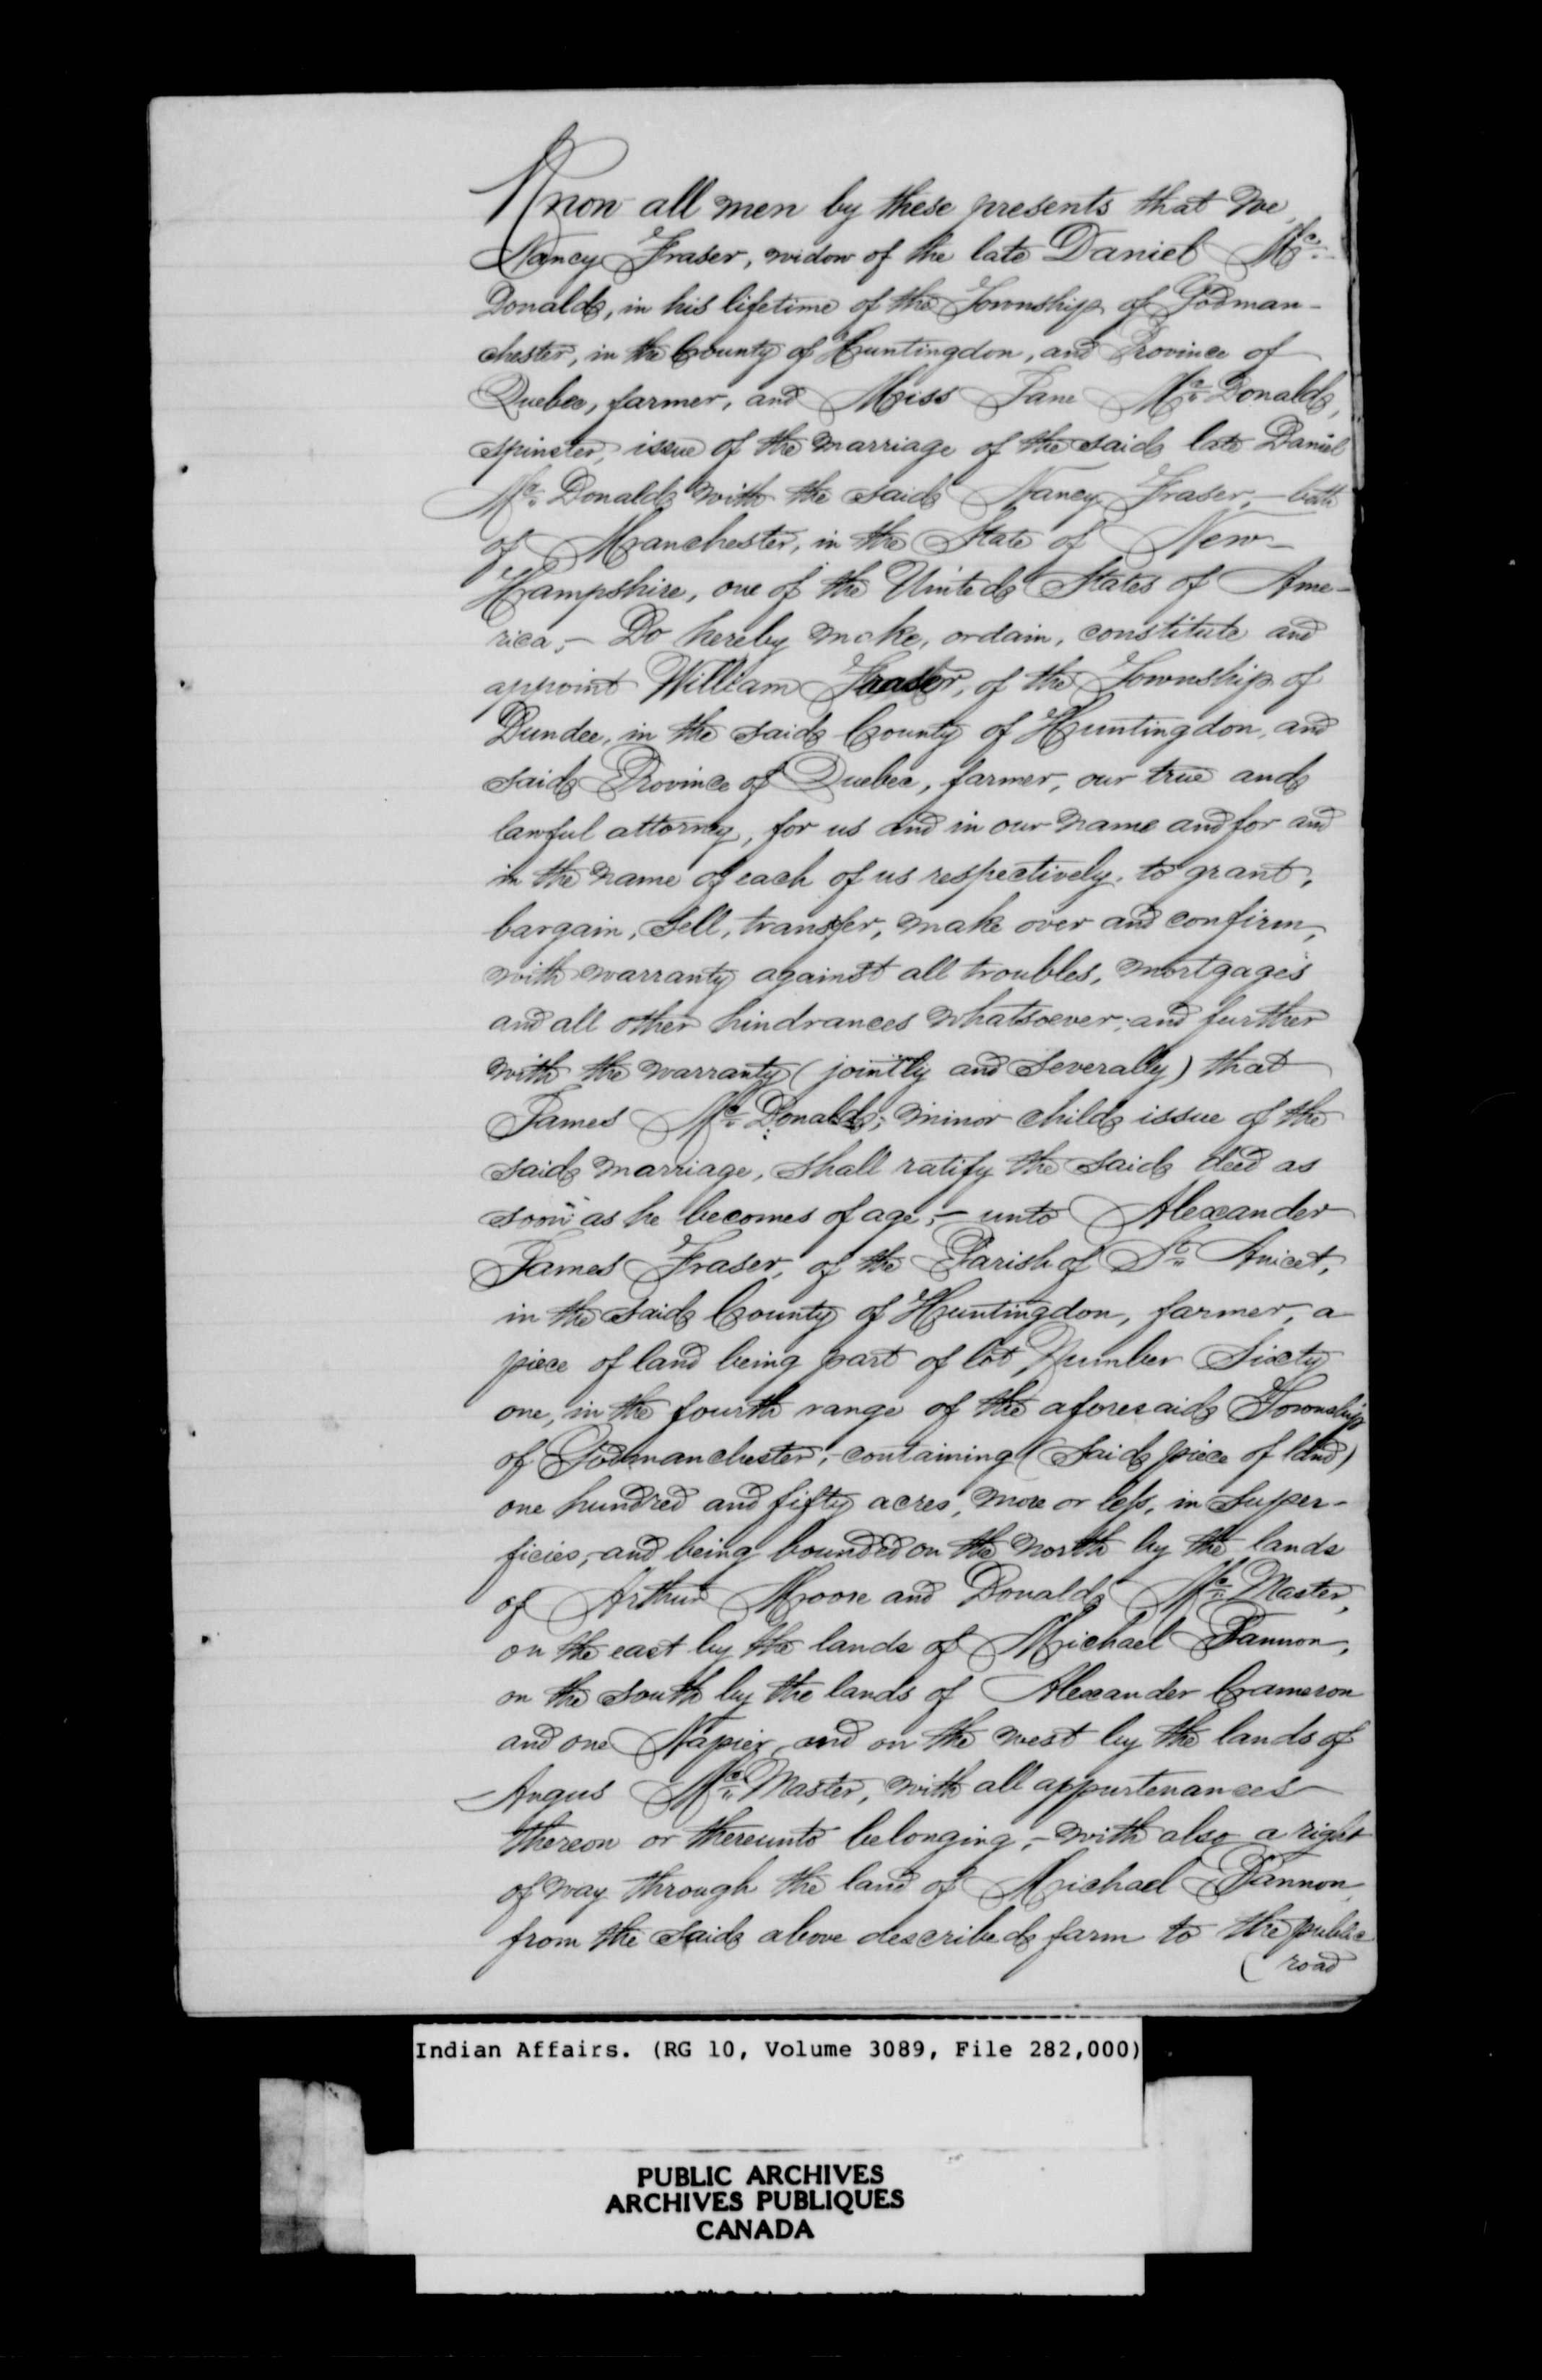 Know all men by these presents that We,
Nancy Fraser, widow of the late Daniel Mc.
Donald, in his lifetime of the Township of Godman-
chester, in the County of Huntingdon, and Province of
Quebec, farmer, and Miss Jane Mc. Donald,
spinster, issue of the marriage of the said late Daniel
Mc. Donald with the said Nancy Fraser, - both
of Manchester, in the State of New-
Hampshire, one of the United States of Ame-
rica, - Do hereby make, ordain, constitute and
appoint William Fraser, of the Township of
Dundee, in the said County of Huntingdon, and
said Province of Quebec, farmer, our true and
lawful attorney, for us and in our name and for and
in the name of each of us respectively, to grant,
bargain, sell, transfer, make over and confirm,
with warranty against all troubles, mortgages
and all other hindrances whatsoever; and further
with the warranty (jointly and severally) that
James Mc. Donald, minor child issue of the
said marriage, shall ratify the said deed as
soon as he becomes of age, - unto Alexander
James Fraser, of the Parish of St. Anicet,
in the said County of Huntingdon, farmer, a
piece of land being part of lot Number Sixty
one, in the fourth range of the aforesaid Township
of Godmanchester, - containing (said piece of land)
one hundred and fifty acres, more or less, in super-
ficies, and being bounded on the north by the lands
of Arthur Moore and Donald Mc. Master,
on the east by the lands of Michael Bannon,
on the south by the lands of Alexander Cameron
and one Napier, and on the west by the lands of
Angus Mc. Master, with all appurtenances
thereon or thereunto belonging, - with also a right
of way through the land of Michael Bannon
from the said above described farm to the public
(road
Indian Affairs. (RG 10, Volume 3089, File 282,000)
PUBLIC ARCHIVES
ARCHIVES PUBLIQUES
CANADA